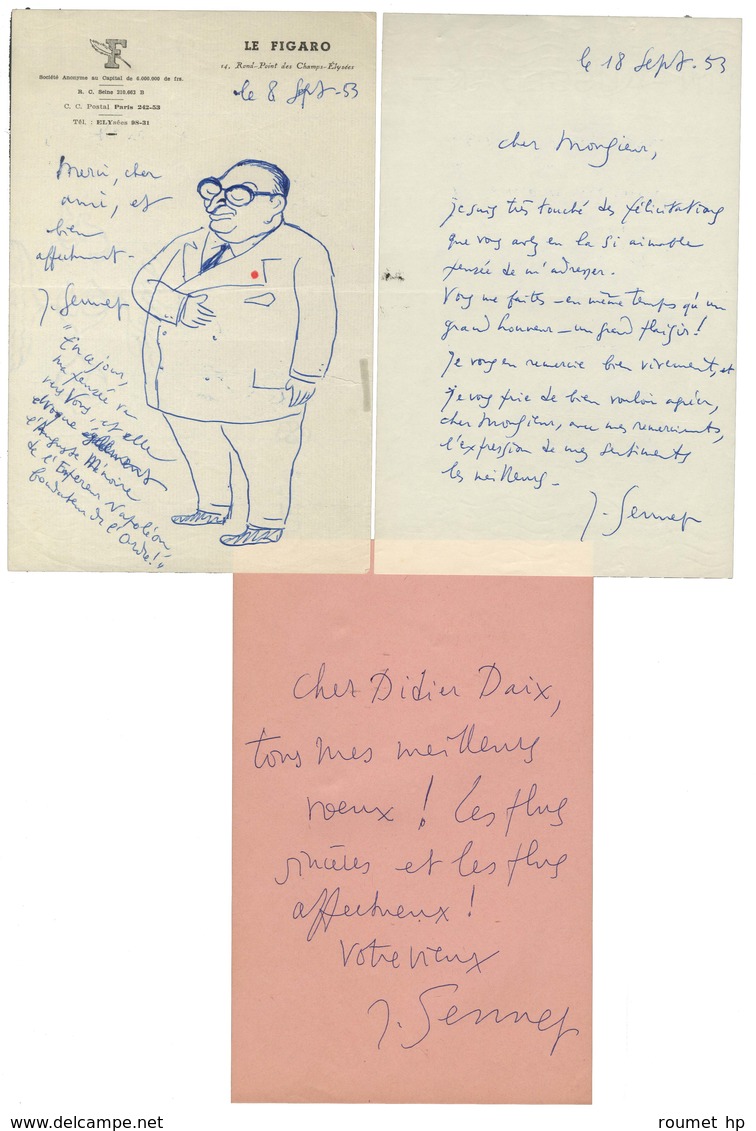 F
Société Anonyme au Capital de 6.000.000 de frs.
R. C. Seine 210.662 B
C. C. Postal Paris 242-53
Tél. : ELYsées 98-31
LE FIGARO
14, Rond-Point des Champs-Élysées
le 8 Sept. 53
Merci, cher
ami, et
bien
affectueusement -
J. Sennep
"En ce jour,
ma pensée va
vers Vous et elle
évoque
l'Auguste Mémoire
de l'Empereur Napoléon,
fondateur de l'Ordre!"
le 18 Sept. 53
Cher Monsieur,
je suis très touché des félicitations
que vous avez eu la si aimable
pensée de m'adresser.
Vous me faites - en même temps qu'un
grand honneur - un grand plaisir!
Je vous en remercie bien vivement, et
je vous prie de bien vouloir agréer,
cher Monsieur, avec mes remerciements,
l'expression de mes sentiments
les meilleurs -
J. Sennep
Cher Didier Daix,
tous mes meilleurs
voeux! Les plus
sincères et les plus
affectueux!
Votre vieux
J. Sennep
roumet hp